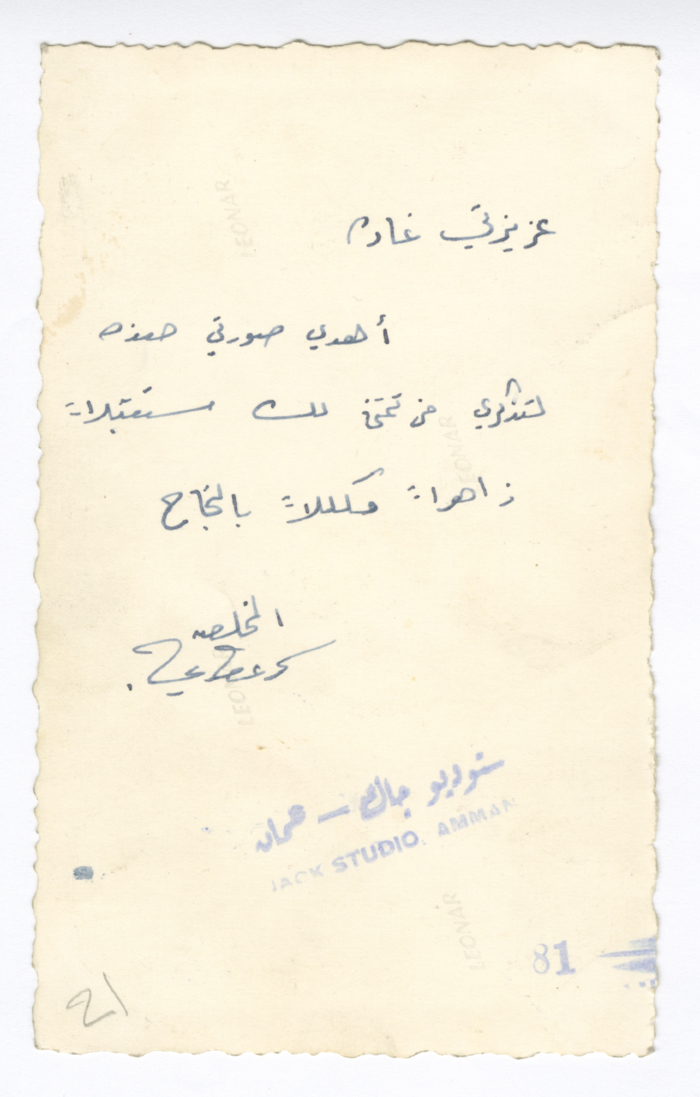 عزيزتي غاده
أهدي صورتي هذه
لتذكري من تتمنى لك مستقبلاً
زاهراً مكللاً بالنجاح
المخلصه
ستوديو جاك – عمان
JACK STUDIO. AMMAN
81
21
LEONAR
LEONAR
LEONAR
LEONAR